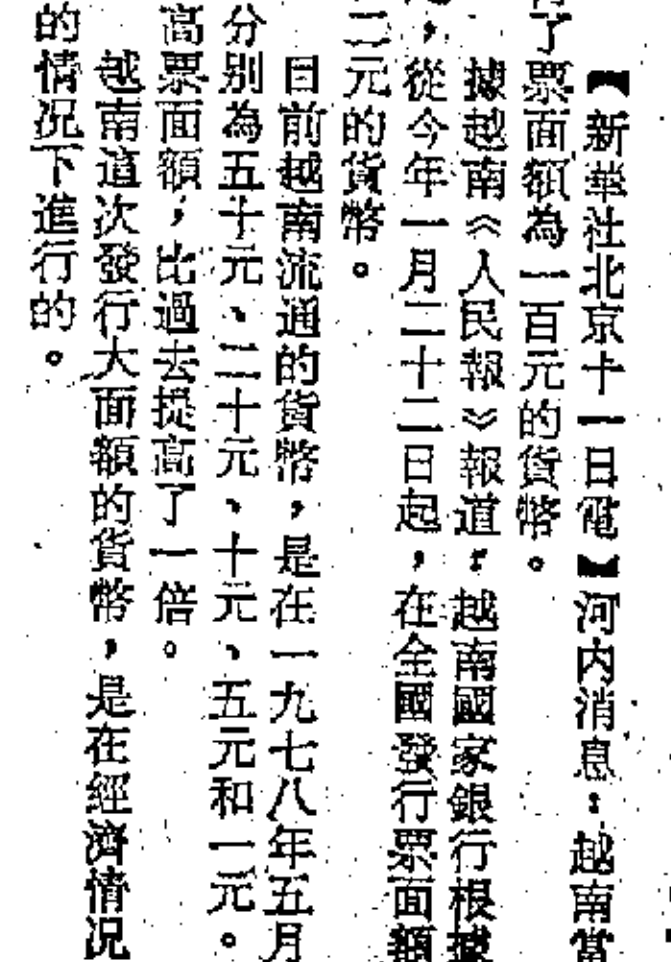 【新華社北京十一日電】河内消息：越南當
了票面額為一百元的貨幣。
據越南《人民報》報道：越南國家銀行根據
，從今年一月二十二日起，在全國發行票面額
二元的貨幣。
目前越南流通的貨幣，是在一九七八年五月
分别為五十元、二十元、十元、五元和一元。
高票面額，比過去提高了一倍。
越南這次發行大面額的貨幣，是在經濟情况
的情况下進行的。